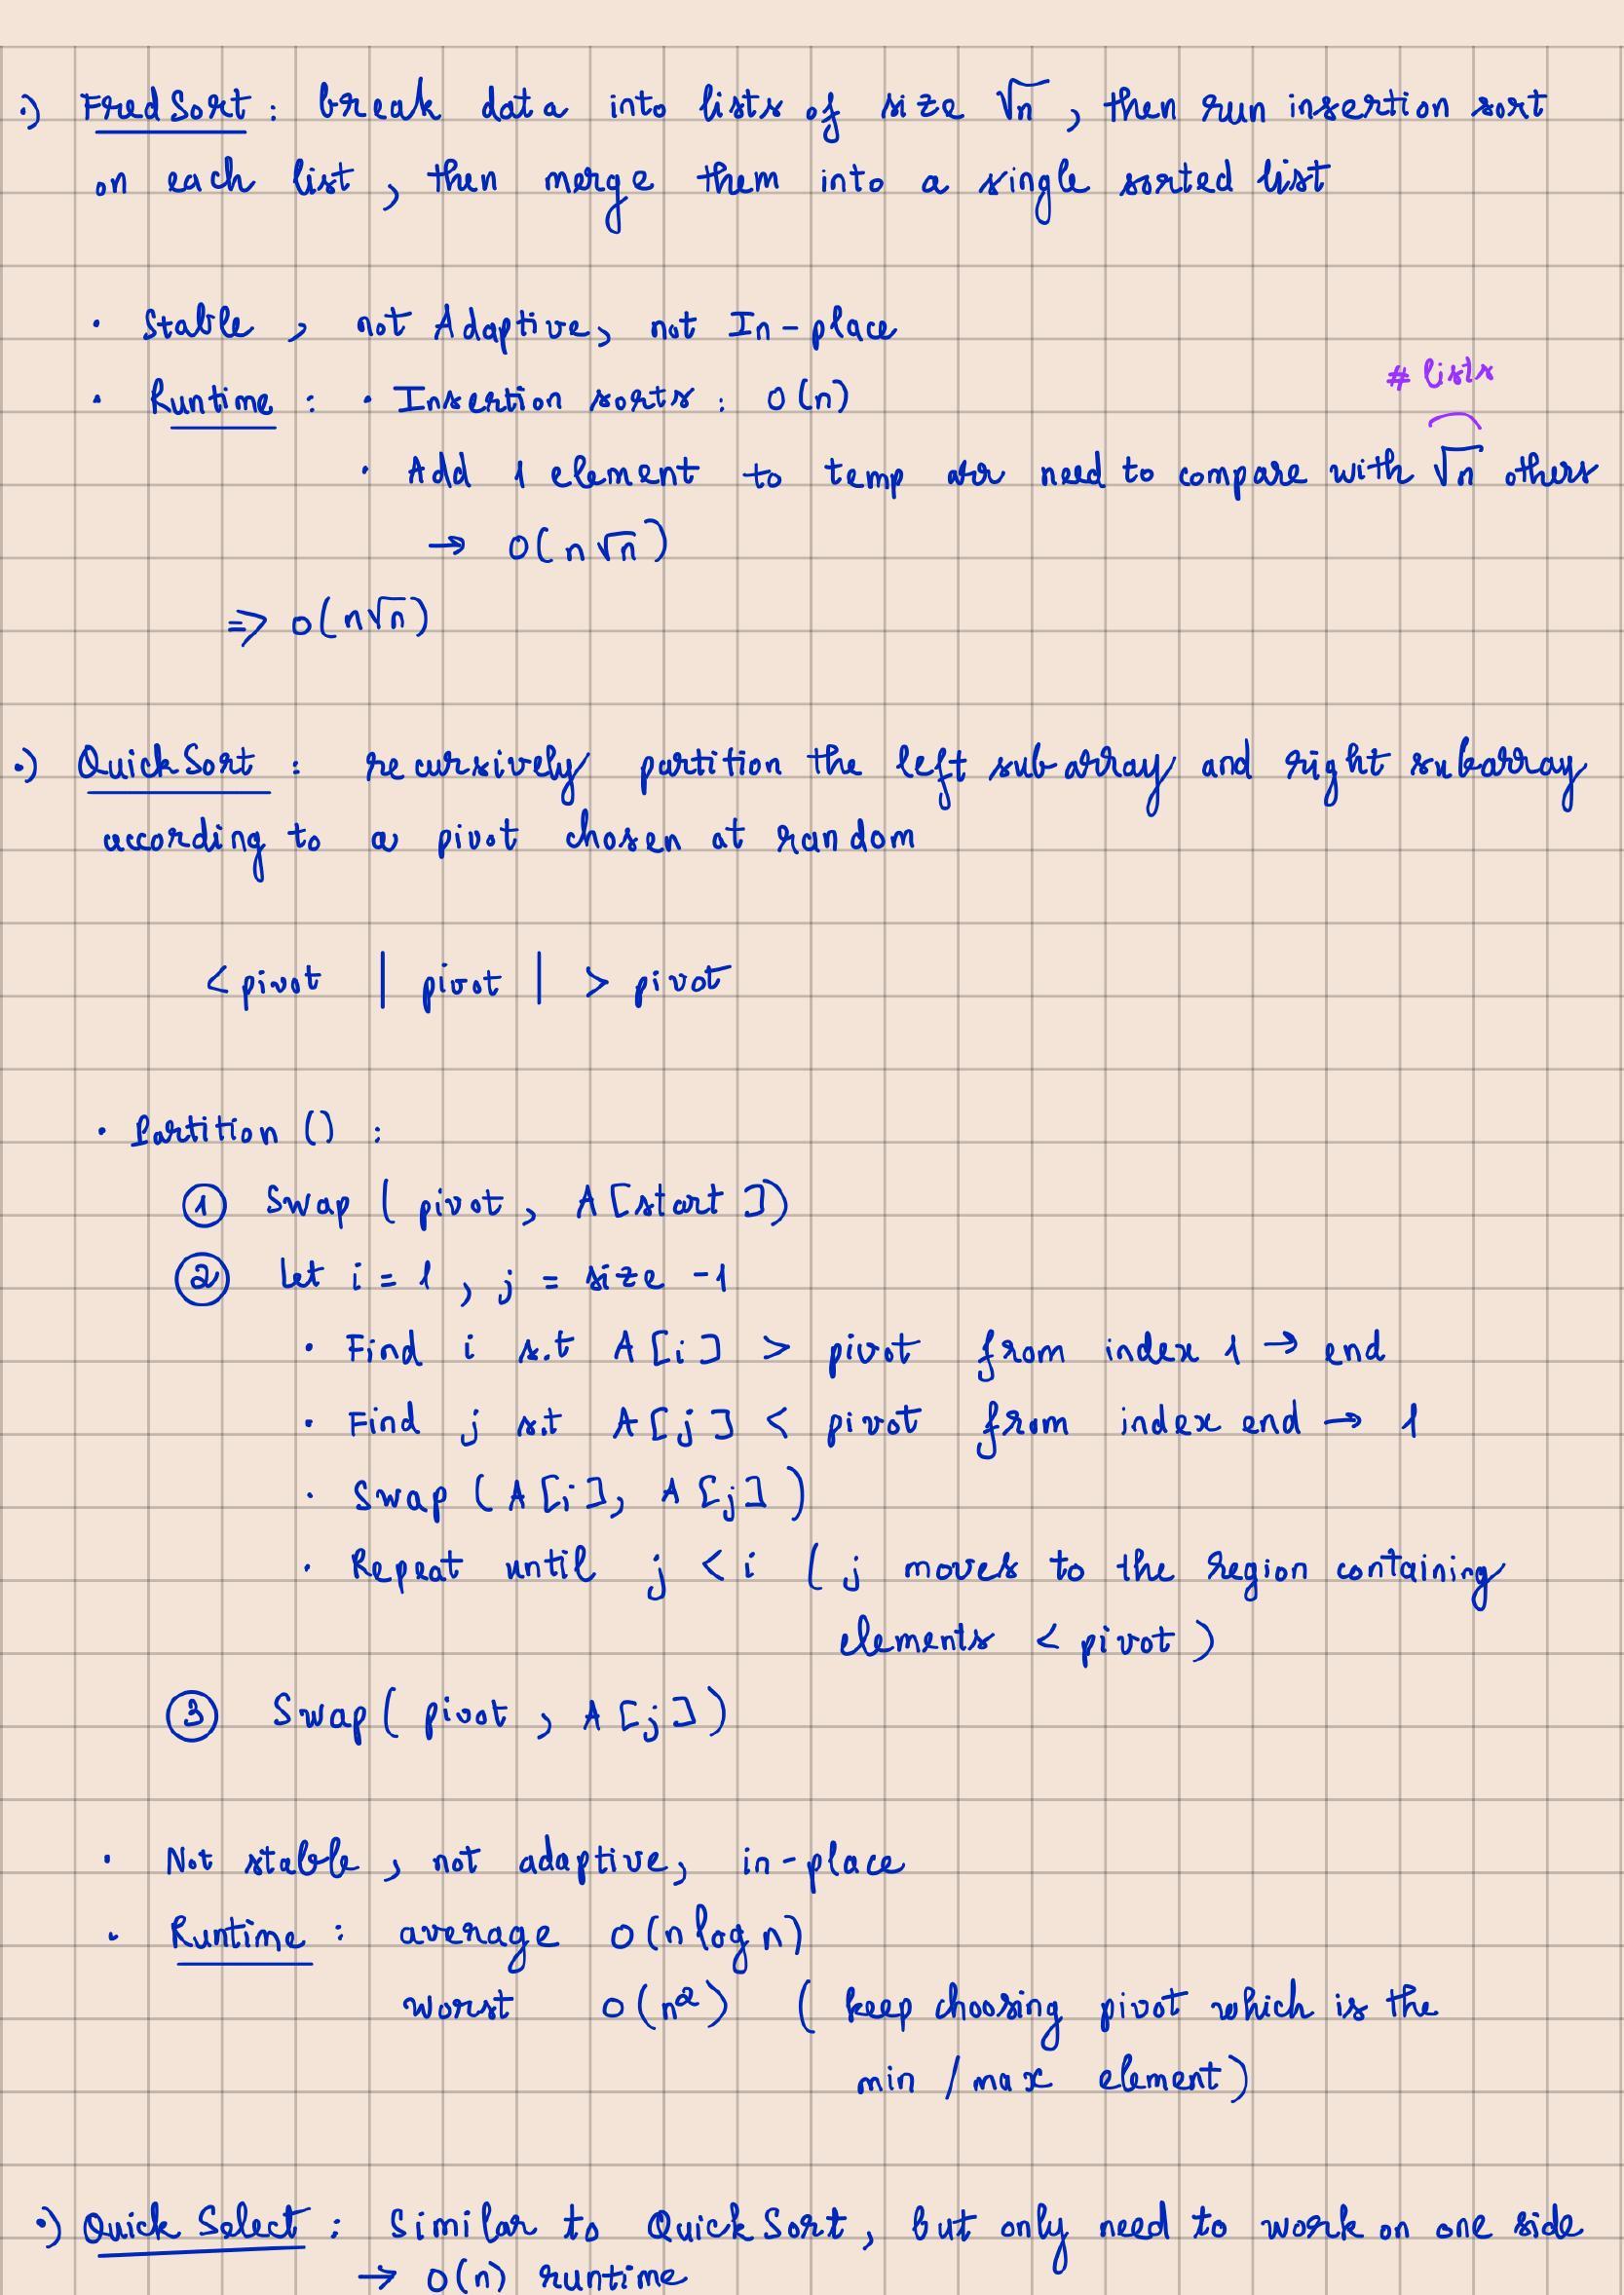 ·) FredSort : break data into lists of size √n , then run insertion sort
on each list , then merge them into a single sorted list
· Stable , not Adaptive, not In-place
# lists
· Runtime : · Insertion sorts : O(n)
· Add 1 element to temp arr need to compare with √n others
→ O(n√n)
=> O(n√n)
·) QuickSort : recursively partition the left subarray and right subarray
according to a pivot chosen at random
< pivot | pivot | > pivot
· Partition () :
① Swap ( pivot , A[start])
② Let i = 1 , j = size -1
· Find i s.t A[i] > pivot from index 1 → end
· Find j s.t A[j] < pivot from index end → 1
· Swap (A[i], A[j])
· Repeat until j < i ( j moves to the region containing
elements < pivot )
③ Swap( pivot , A[j])
· Not stable , not adaptive, in-place
· Runtime : average O(n log n)
worst O(n²) ( keep choosing pivot which is the
min / max element)
·) Quick Select : Similar to QuickSort, but only need to work on one side
→ O(n) runtime